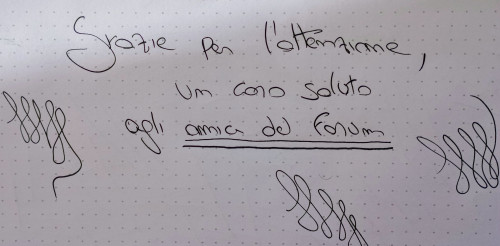 Grazie per l'attenzione,
un caro saluto
agli amici del Forum